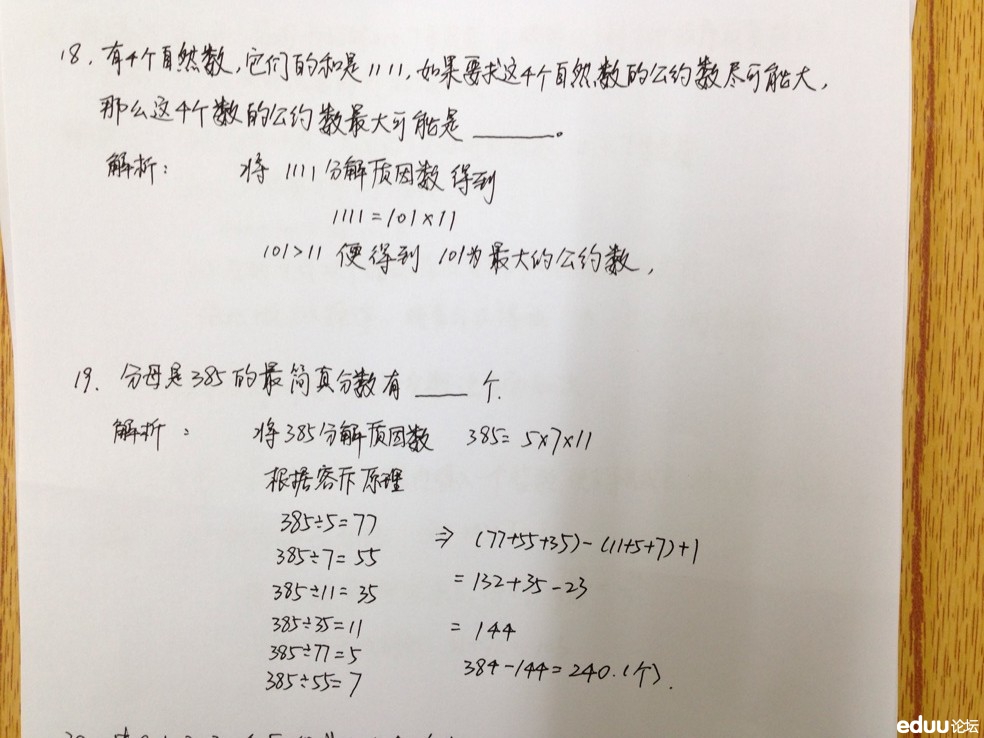 18. 有4个自然数,它们的和是1111,如果要求这4个自然数的公约数尽可能大,
那么这4个数的公约数最大可能是 ______。
解析: 将 1111 分解质因数得到
1111=101×11
101>11 便得到 101为最大的公约数,
19. 分母是385的最简真分数有 ____ 个.
解析: 将385分解质因数 385=5×7×11
根据容斥原理
385÷5=77
385÷7=55
385÷11=35
385÷35=11
385÷77=5
385÷55=7
⇒ (77+55+35)-(11+5+7)+1
=132+35-23
=144
384-144=240.(个).
eduu论坛